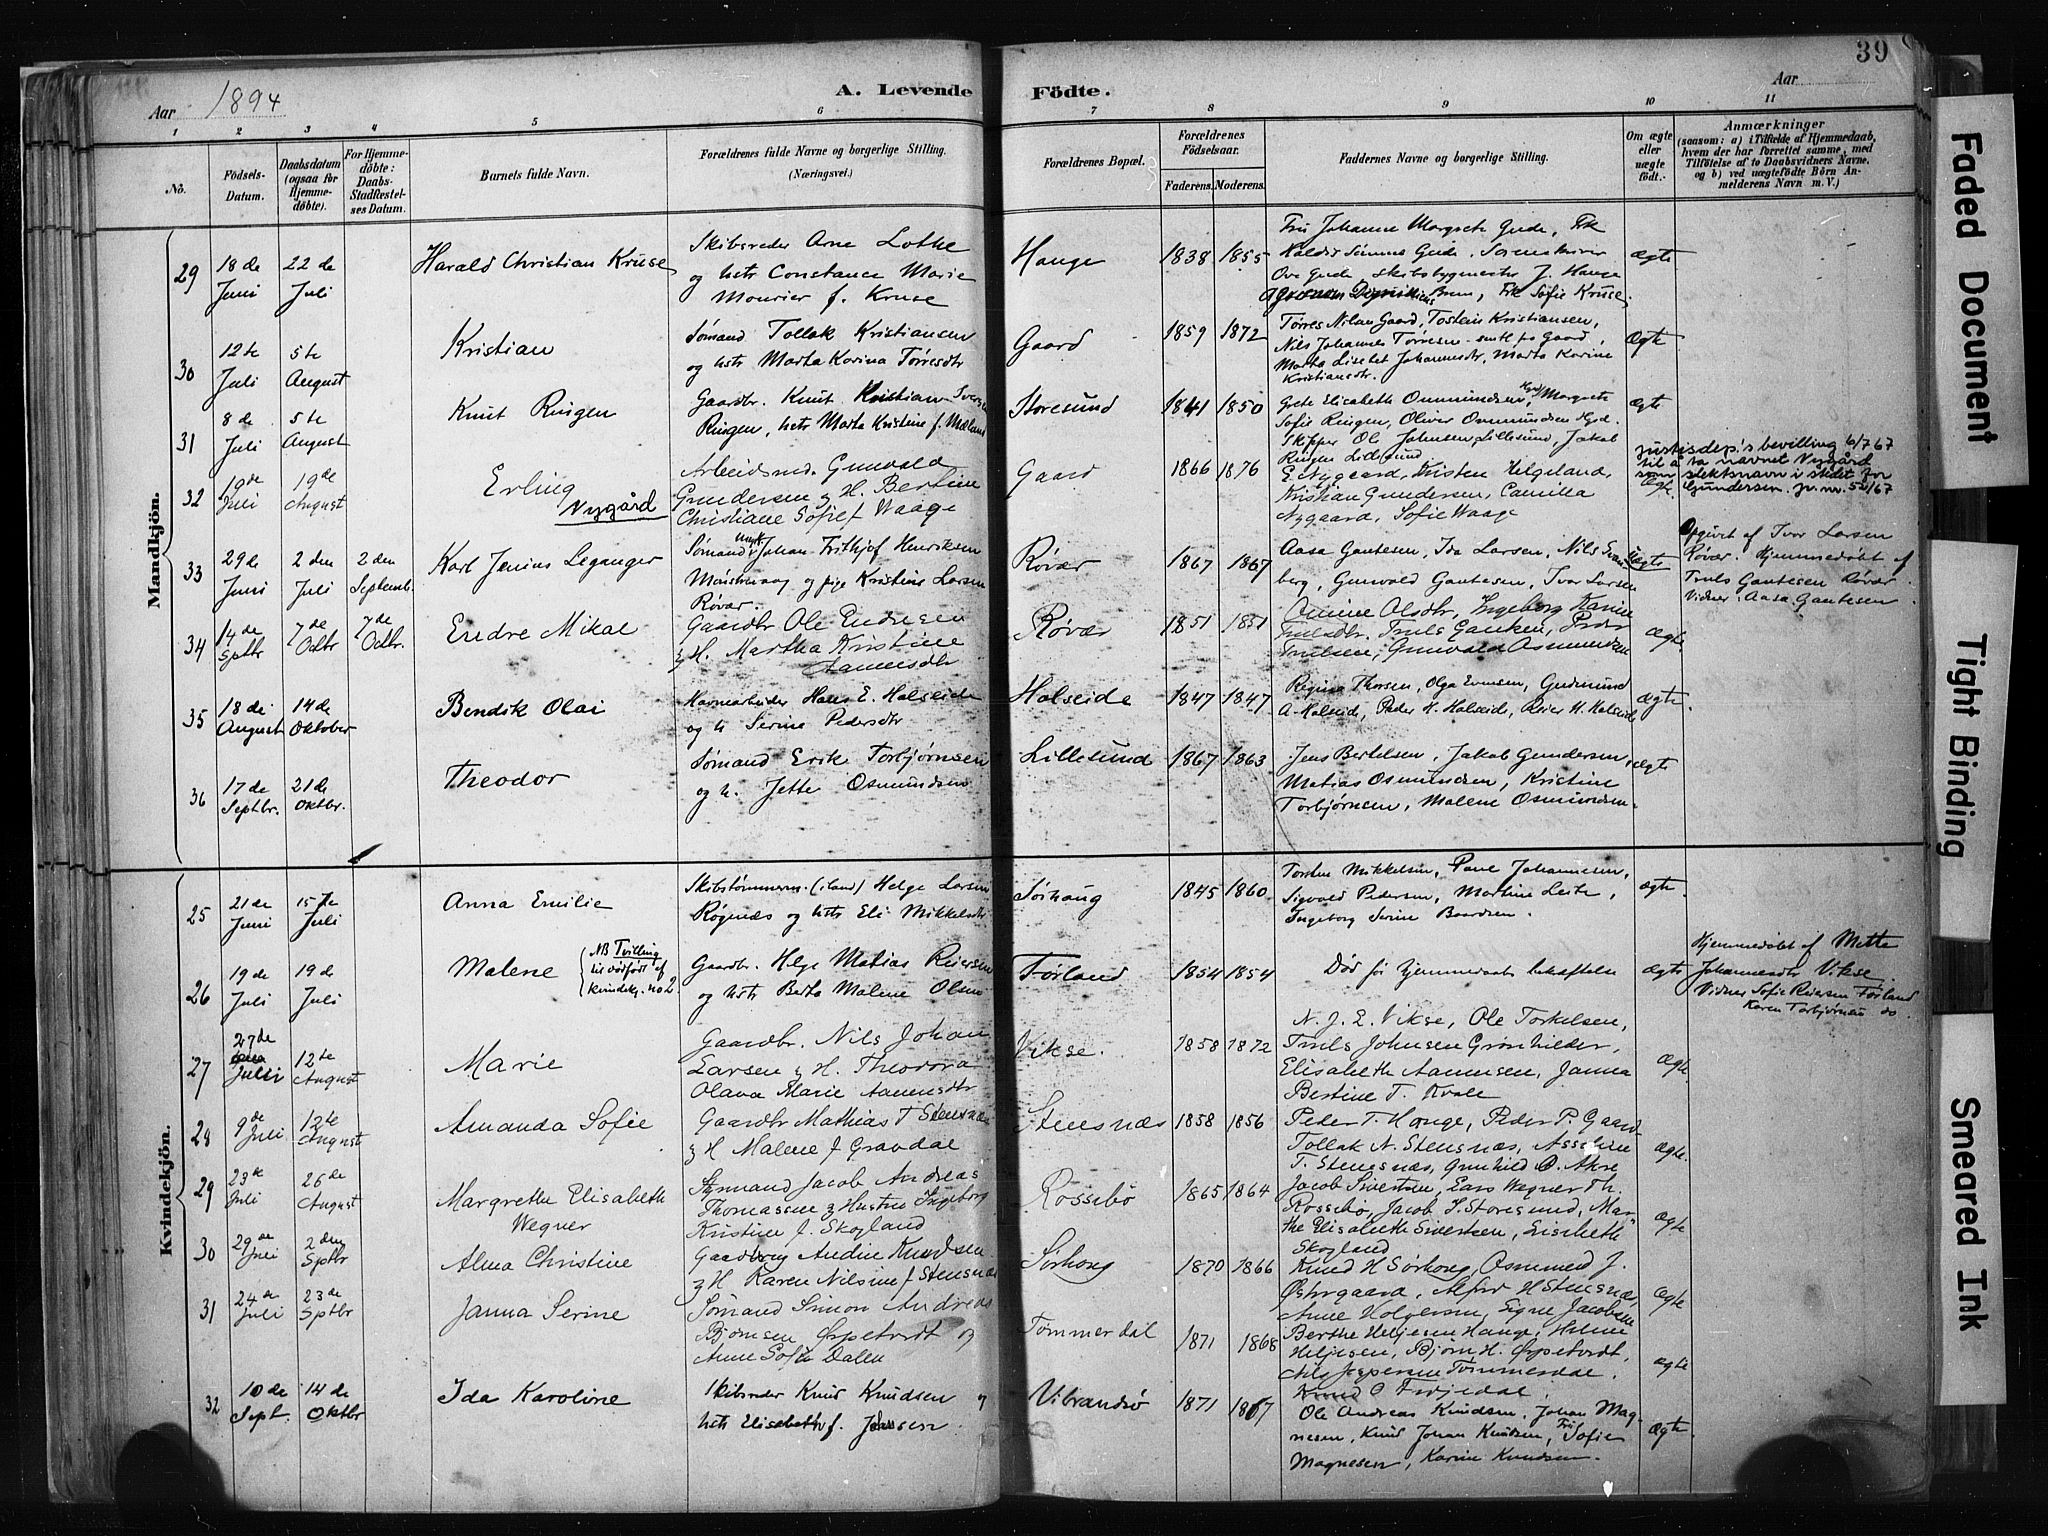 39
Aar 1894
A. Levende Födte.
Aar
1 2 3 4 5 6 7 8 9 10 11
No.
Födsels-Datum.
Daabsdatum (ogsaa for Hjemme-döbte).
For Hjemme-döbte: Daabs-Stadfæstel-ses Datum.
Barnets fulde Navn.
Forældrenes fulde Navne og borgerlige Stilling.
(Næringsvei.)
Forældrenes Bopæl.
Forældrenes Födselsaar.
Faderens. Moderens.
Faddernes Navne og borgerlige Stilling.
Om ægte eller uægte födt.
Anmærkninger
(saasom: a) i Tilfælde af Hjemmedaab, hvem der har forrettet samme, med Tilföielse af to Daabsvidners Navne. og b) ved uægtefödte Börn Anmelderens Navn m. V.)
Mandkjön.
29 18 de Juni 22 de Juli Harald Christian Kruse
Skibsreder Arne Lothe
og hstr Constance Marie
Mourier f. Kruse
Hauge 1838 1855
Fru Johanne Margrete Gude, Frk
Ove Gude, skibsbygmester J. Hauge
Brun, Frk Sofie Kruse.
ægte
30 12 te Juli 5 te August Kristian
Sømand Tollak Kristiansen
og hstr Marta Korina Tørresdtr
Gaard 1859 1872
Tørres Nilsen Gaard, Tostein Kristiansen,
Nils Johannes Tørresen - smtl fra Gaard,
Marta Liselet Johannesdtr, Marta Karine
Kristiansdtr.
Ægte
31 8 de Juli 5 te August Knut Ringen
Gaardbr. Knut Kristian Iversen
Ringen, hstr Marta Kristine f. Mæland
Storesund 1841 1850
Grete Elisabeth Osmundsen, Margrete
Sofie Ringen, Oliver Osmundsen Hgsd.
Skipper Ol. Johnsen, Lillesund, Jakob
Ringen Lillesund
ægte
32 19 de Juli 19 de August Erling
Nygård
Arbeidsmd. Gunvald
Gundersen & H. Bertine
Christiane Sofie f Waage
Gaard 1866 1876
E. Nygaard, Kristen Helgeland,
Kristian Gundersen, Camilla
Nygaard, Sofie Waage
Ægte
justisdep's bevilling 6/7 67
til å ta navnet Nygård
som slektsnavn i stedet for
Gundersen. jv. nr. 52/67
33 29 de Juni 2 den Juli 2 den Septemb. Karl Jenius Leganger
Sømand Ungk. Johan Frithjof Henriksen
og pige Kristine Larsen
Røvær.
Røvær 1867 1867
Aasa Gautesen, Ida Larsen, Nils Svane
berg, Gunvald Gautesen, Ivar Larsen
uægte
Opgivet af Ivar Larsen
Røvær. Hjemmedøbt af
Truls Gautesen Røvær.
Vidner: Aasa Gautesen
34 14 de Sptbr 7 de Octbr 7 de Octbr. Endre Mikal
Gaardbr Ole Endresen
& H. Martha Kristine
Aamundsdtr
Røvær 1851 1851
Omine Olsdtr, Ingeborg Karine
Trulsdtr. Truls Gautesen, Peder
Trulsen, Gunvald Asmundsen
Ægte
35 18 de August 14 de Oktober Bendik Olai
Havnearbeider Hans E. Halseide
og h Serine Pedersdtr
Halseide 1847 1847
Regina Thorsen, Olga Evensen, Gudmund
A. Halseide, Peder H. Halseide, Reier H. Halseide
ægte.
36 17 de Septbr. 21 de Oktbr. Theodor
Sømand Erik Torbjørnsen
og h. Jette Osmundsen
Lillesund 1867 1863
Jens Bertelsen, Jakob Gundersen,
Matias Osmundsen, Kristine
Torbjørnsen, Malene Osmundsen.
ægte
Kvindekjön.
25 21 de Juni 15 de Juli Anna Emilie
Skibstømmerm. (iland) Helge Larsen
Røgnæs og hstr Eli Mikkelsdtr
Sørhaug 1845 1860
Torsten Mikkelsen, Pane Johannesen,
Sigvald Pedersen, Martine Leite,
Ingeborg Serine Baardsen.
ægte.
26 19 de Juli 19 de Juli Malene
NB Tvilling
til dødfødt af
kvindekj. no 2.
Gaardbr. Helge Matias Reiersen
og hstr Berta Malene Olsen
Førland 1854 1854
Død før hjemmedaabs bekræftelse
ægte
Hjemmedøbt af Mette
Johannesdtr Vikse
Vidner Sofie Reiersen Førland
Karen Torbjørnsen do.
27 27 de Juli 12 te August Marie
Gaardbr. Nils Johan
Larsen & H. Theodora
Olava Marie Aamundsdtr
Vikse. 1858 1872
N. J. E. Vikse, Ole Torkelsen,
Truls Johnsen Grønhilder,
Elisabeth Aamundsen, Janna
Bertine T. Kvale
Ægte.
28 9 de Juli 12 te August Amanda Sofie
Gaardbr Mathias T Stensnæs
& H Malene f Gravdal
Stensnæs 1858 1856
Peder T. Hauge, Peder P. Gaard
Tollak N. Stensnæs, Asseline
T. Stensnæs, Gunhild O. Akse
Ægte.
29 23 de Juli 26 de August Margrethe Elisabeth
Wegner
Styrmand Jacob Andreas
Thomassen & Hustru Ingeborg
Kristine f. Skogland
Rossebø 1865 1864
Jacob Sivertsen, Lars Wegner Th.
Rossebø, Jacob S. Storesund, Mar-
the Elisabeth Sivertsen, Lisebeth
Skogland
Ægte
30 29 de Juli 2 den Sptbr Alma Christine
Gaardbrug Andreas Knudsen
& H Karen Nilsine f Stensnæs
Sørhaug 1870 1866
Knud H Sørhaug, Osmund J.
Østrigaard, Alfred H Stensnæs,
Anne Holgersen, Signe Jacobsen
Ægte
31 24 de Juli 23 de Sptbr Janna Serine
Sømand Simon Andreas
Bjørnsen Ørpetvedt og
Anne Sofie Dalen
Tømmerdal 1871 1868
Berthe Heljesen Hauge, Helene
Heljesen, Bjørn H. Ørpetvedt,
Nils Jespersen Tømmerdal.
Knud O Frøjedal.
Ægte
32 10 de Sept. 14 de Oktbr Ida Karoline
Skibsreder Knud Knudsen og
hstr Elisabeth f. Jansen
Vibrandsø 1871 1867
Ole Andreas Knudsen, Johan Mag-
nesen, Knud Johan Knudsen, Fru Sofie
Magnesen, Karine Knudsen.
Ægte
Faded Document
Tight Binding
Smeared Ink